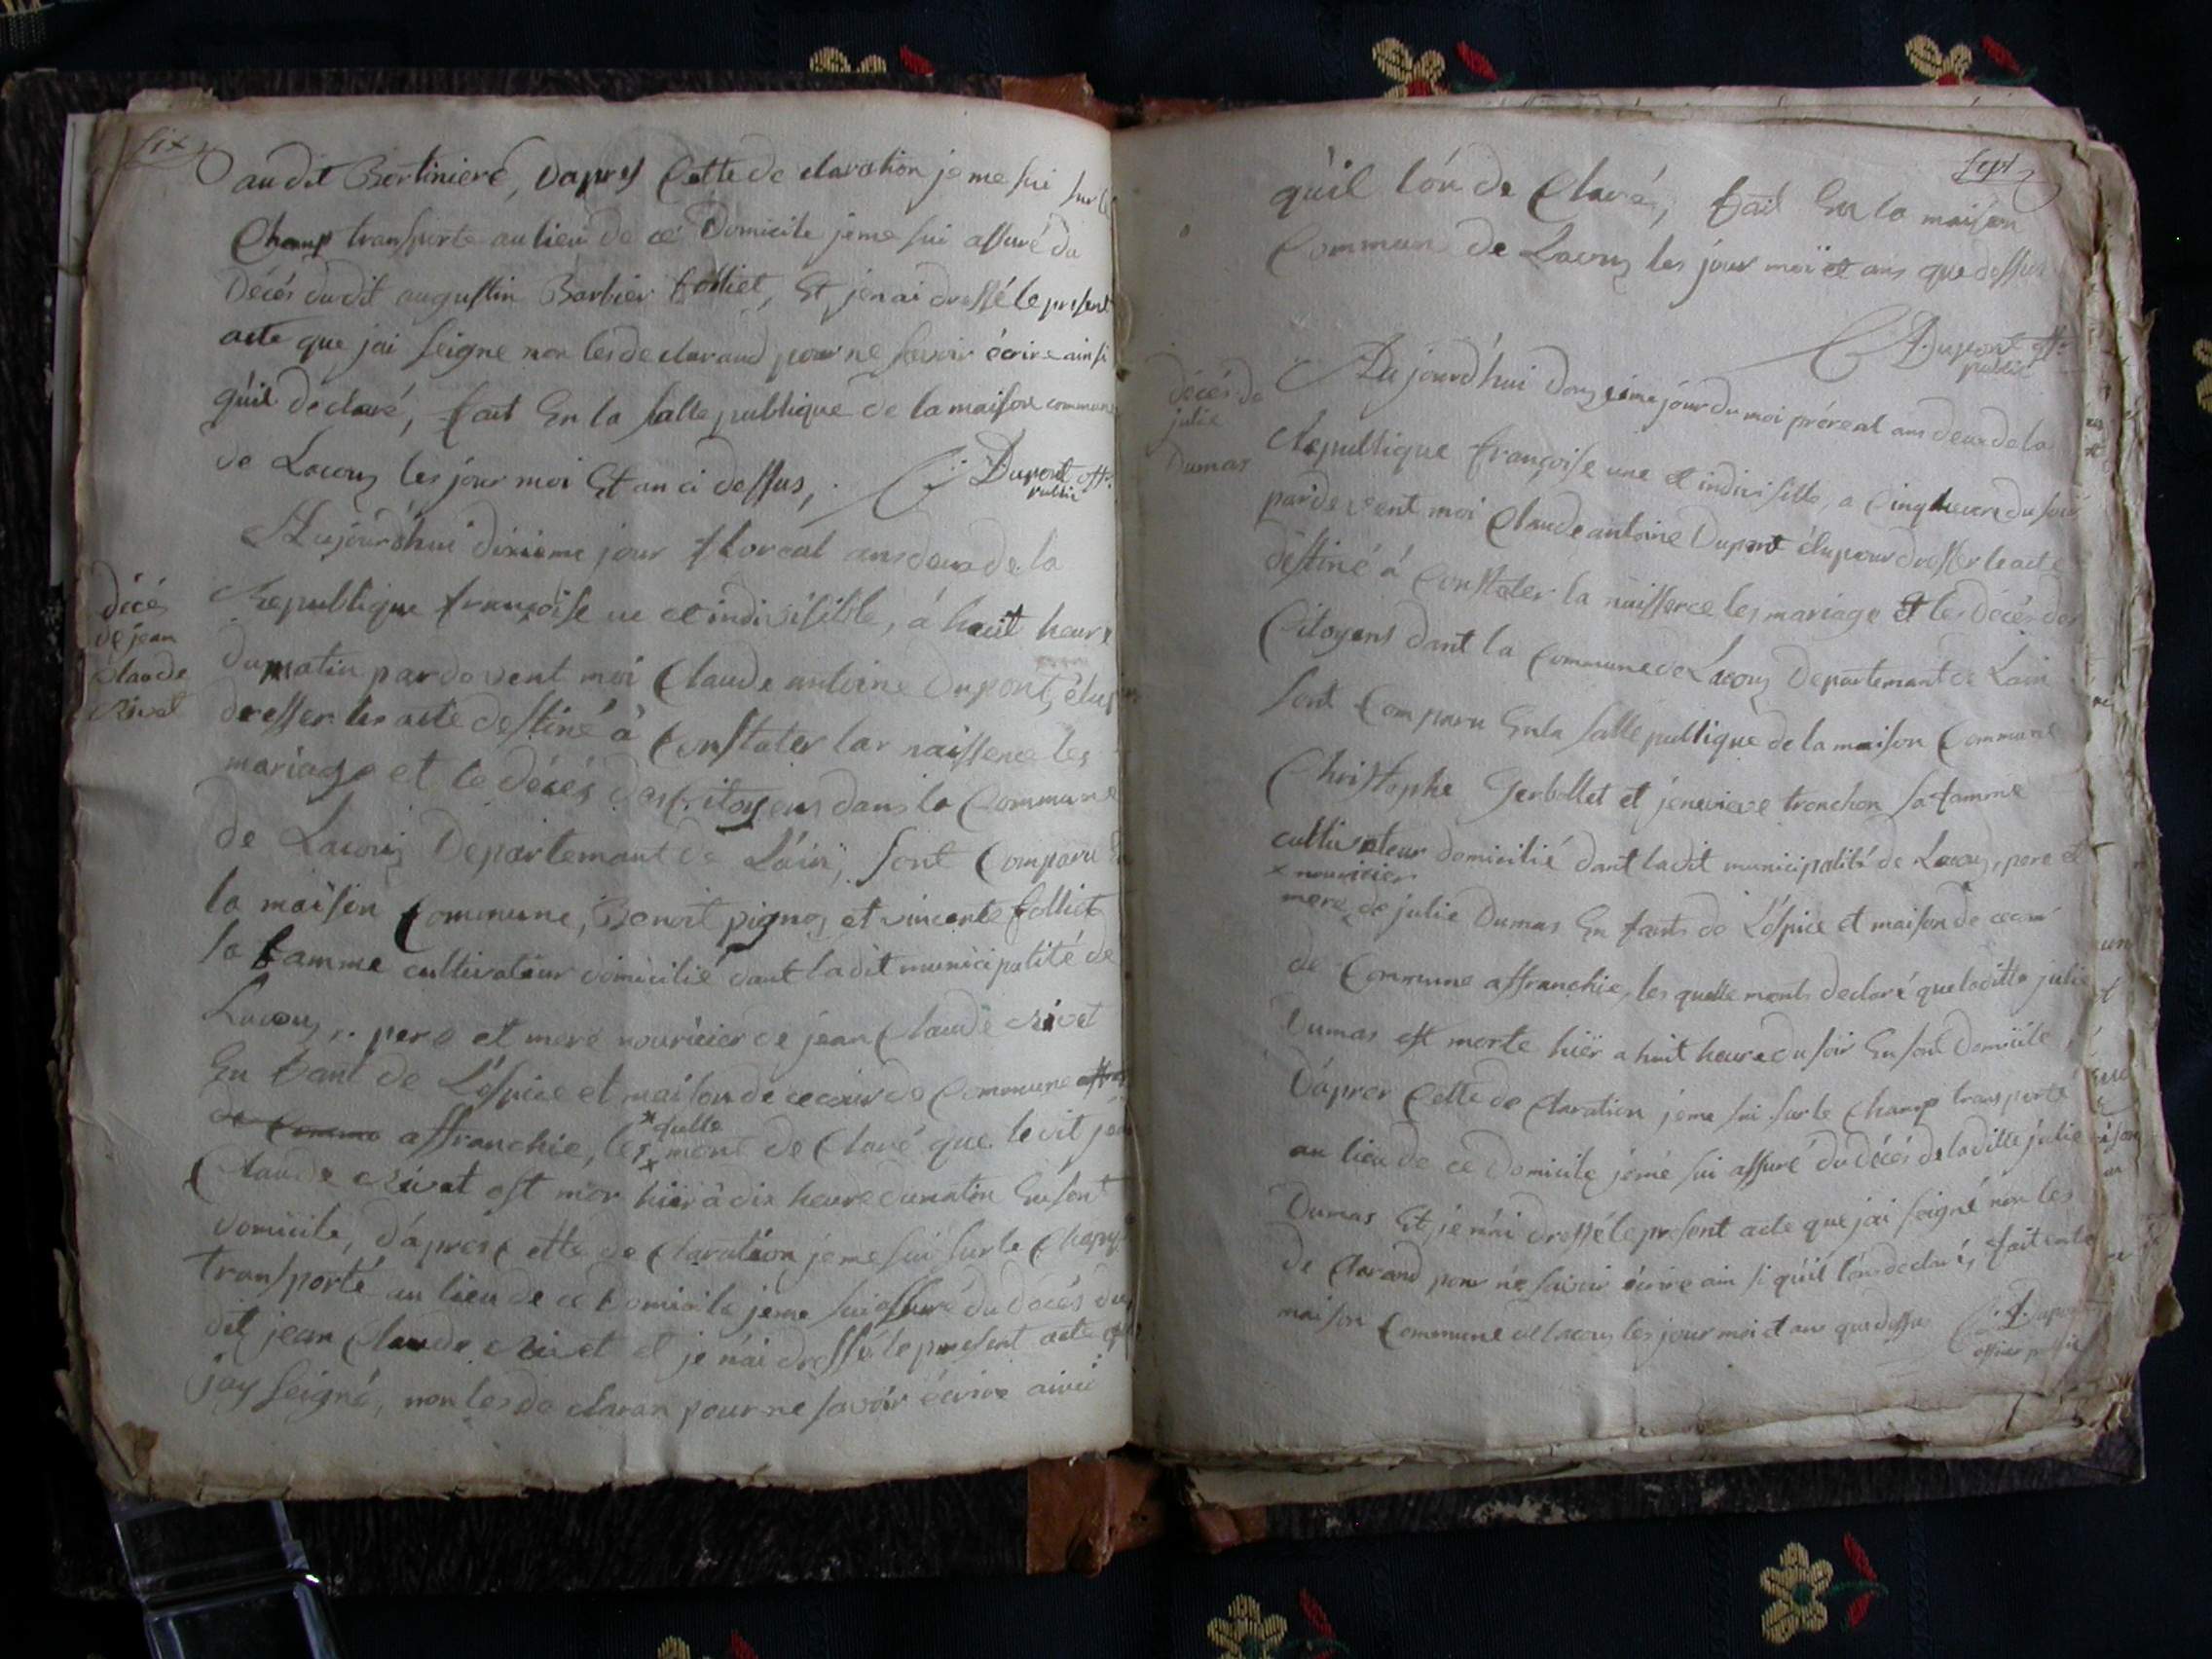 six
audit Bertinieré, Dapres Cette de claration je me sui sur le
Champ transporte au lieu de ce Domicile je me sui assuré du
Décés dudit augustin Barbier folliet, Et jen ai dressé le present
acte que jai seigne non les declarand pour ne savoir écrire ainsi
quil declaré, fait En la salle publique de la maison commune
de Lacoux les jour moi Et an ci dessus,
C Dupont off.
public
décés
de jean
claude
Rivet
Aujourd'hui dixieme jour floreal ans deux de la
Republique françoise ue et indivisible, á huit heure
du matin pardevent moi Claude antoine Dupont, élu
dresser les acte destiné à Constater lar naissence les
mariage et le décés des Citoyens dans la Commune
de Lacoux Departemant de Láin, sont Comparu
la maison Commune, Benoit pignoz et vincente folliet
sa famme cultivateur domicilié dant ladit municipalité de
Lacoux, pere et mere nouricier de jean Claude Rivet
En fant de L'éspice et maison de cecour de Commune
de Commu affranchie, les *quelle mont de Claré que ledit
Claude Rivet est mor hiër à dix heure du matin En sont
domicile, d'apres Cette de Claration je me sui sur le Champ
transporté au lieu de ce Domicile je me sui assuré du décés du
dit jean Claude Rivet et je n'ai dressé le present acte
jay seigné, non les de claran pour ne savoir écrire
sept
qu'il lon de Claré, fait En la maison
Commune de Lacoux les jour moi et ans que dessus
C Dupont off.
public
décés de
julie
Dumas
Aujourd'hui Douzieme jour du moi préreal ans deux de la
Republique françoise une et indivisible, a Cinq heure du soir
pardevent moi Claude antoine Dupont élu pour dresser le acte
destiné á Constater la naissence les mariage et les décés des
Citoyens dant la Commune de Lacoux Departemant de Lain
sont Comparu En la salle publique de la maison Commune
Christophe Gerbollet et jenevieve tronchon sa famme
cultivateur domicilié dant ladit municipalité de Lacoux, pere et
× nouricier
mere × de julie Dumas En fants de L'éspice et maison de cecour
de Commune affranchie, les quelle monts declaré que laditte julie
Dumas est morte hiër a huit heure du soir En sont Domicile,
D'apres Cette de Claration je me sui sur le Champ transporté
au lieu de ce Domicile je me sui assuré du décés de laditte julie
Dumas Et je n'ai dressé le present acte que jai seigné non les
de Clarand pour ne savoir écrire ain si qu'il l'on declaré, fait en la
maison Commune de Lacoux les jour moi et ans que dessus
C. A. Dupont
officier public